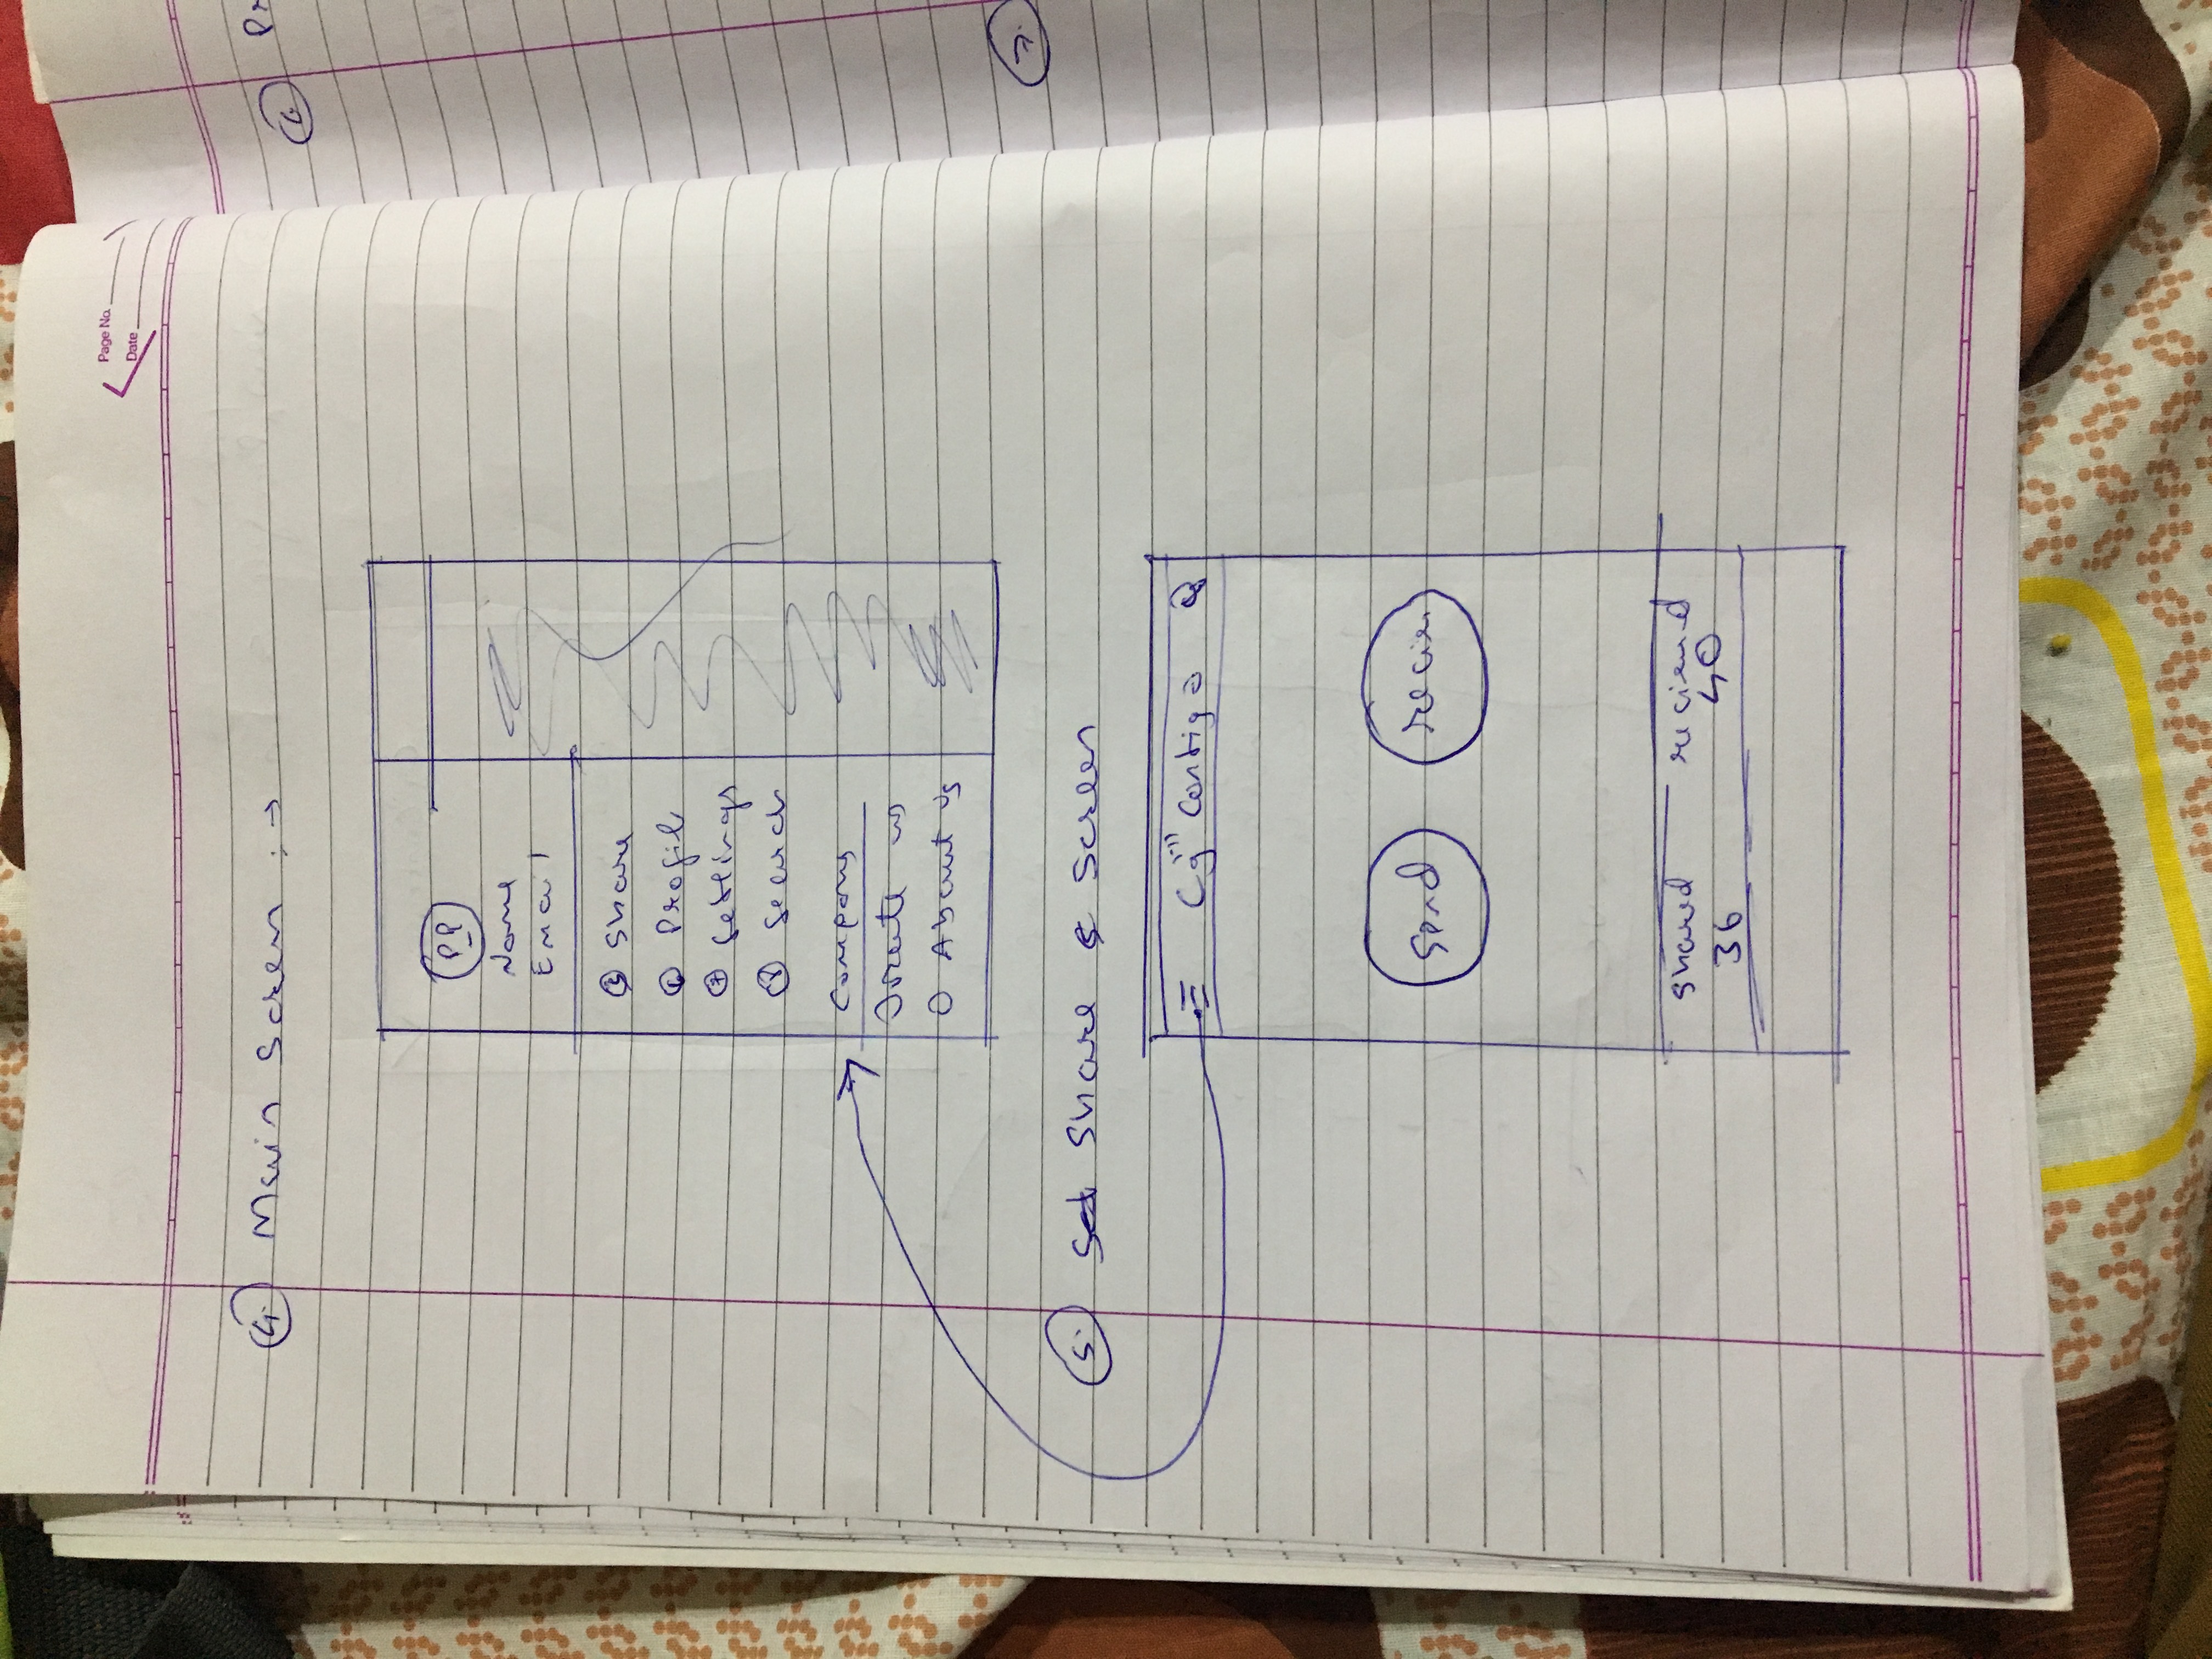 Page No.
Date
4. Main Screen : →
PP
Name
Email
5 Share
6 Profil
7 Settings
8 Search
Company
O About us
5. Share Screen
Contigo
Send
recieve
shared recieved
36 40
6 Pr
7.